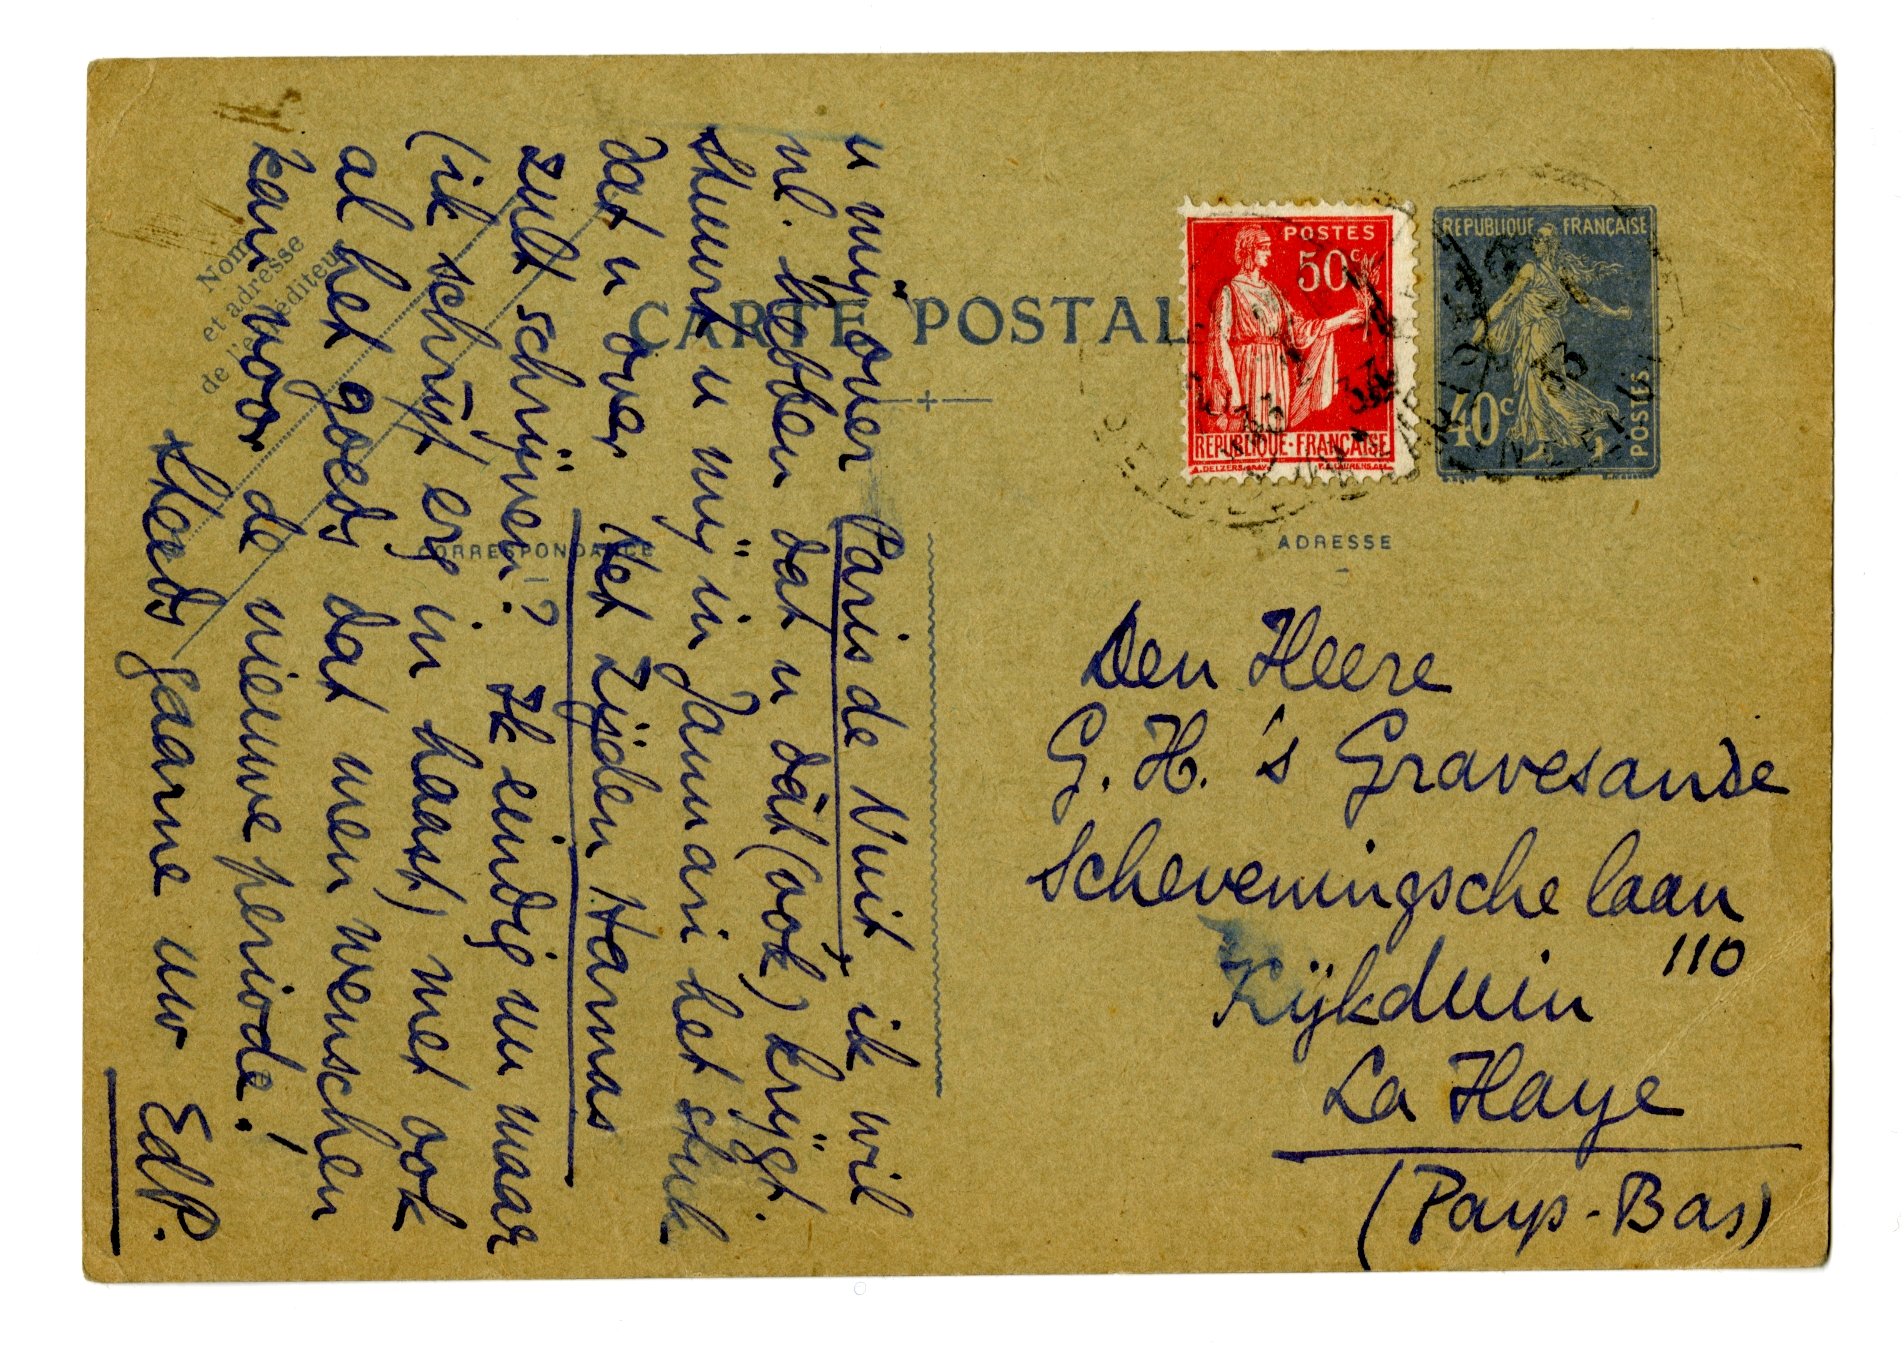 CARTE POSTALE
Nom
et adresse
de l'expéditeur
CORRESPONDANCE
ADRESSE
REPUBLIQUE FRANÇAISE
40c
POSTES
POSTES
50c
REPUBLIQUE·FRANÇAISE
u mij over Paris de Nuit, ik wil
nl. hebben dat u dàt (ook) krijgt.
stuurt u mij in Januari het stuk
dat u over Het Zijden Harnas
zult schrijven? Ik eindig nu maar
(ik schrijf erg in haast) met ook
al het goeds dat men wenschen
kan voor de nieuwe periode!
Steeds gaarne uw EdP.
Den Heere
G. H. 's Gravesande
Scheveningsche laan
110
Kijkduin
La Haye
(Pays-Bas)